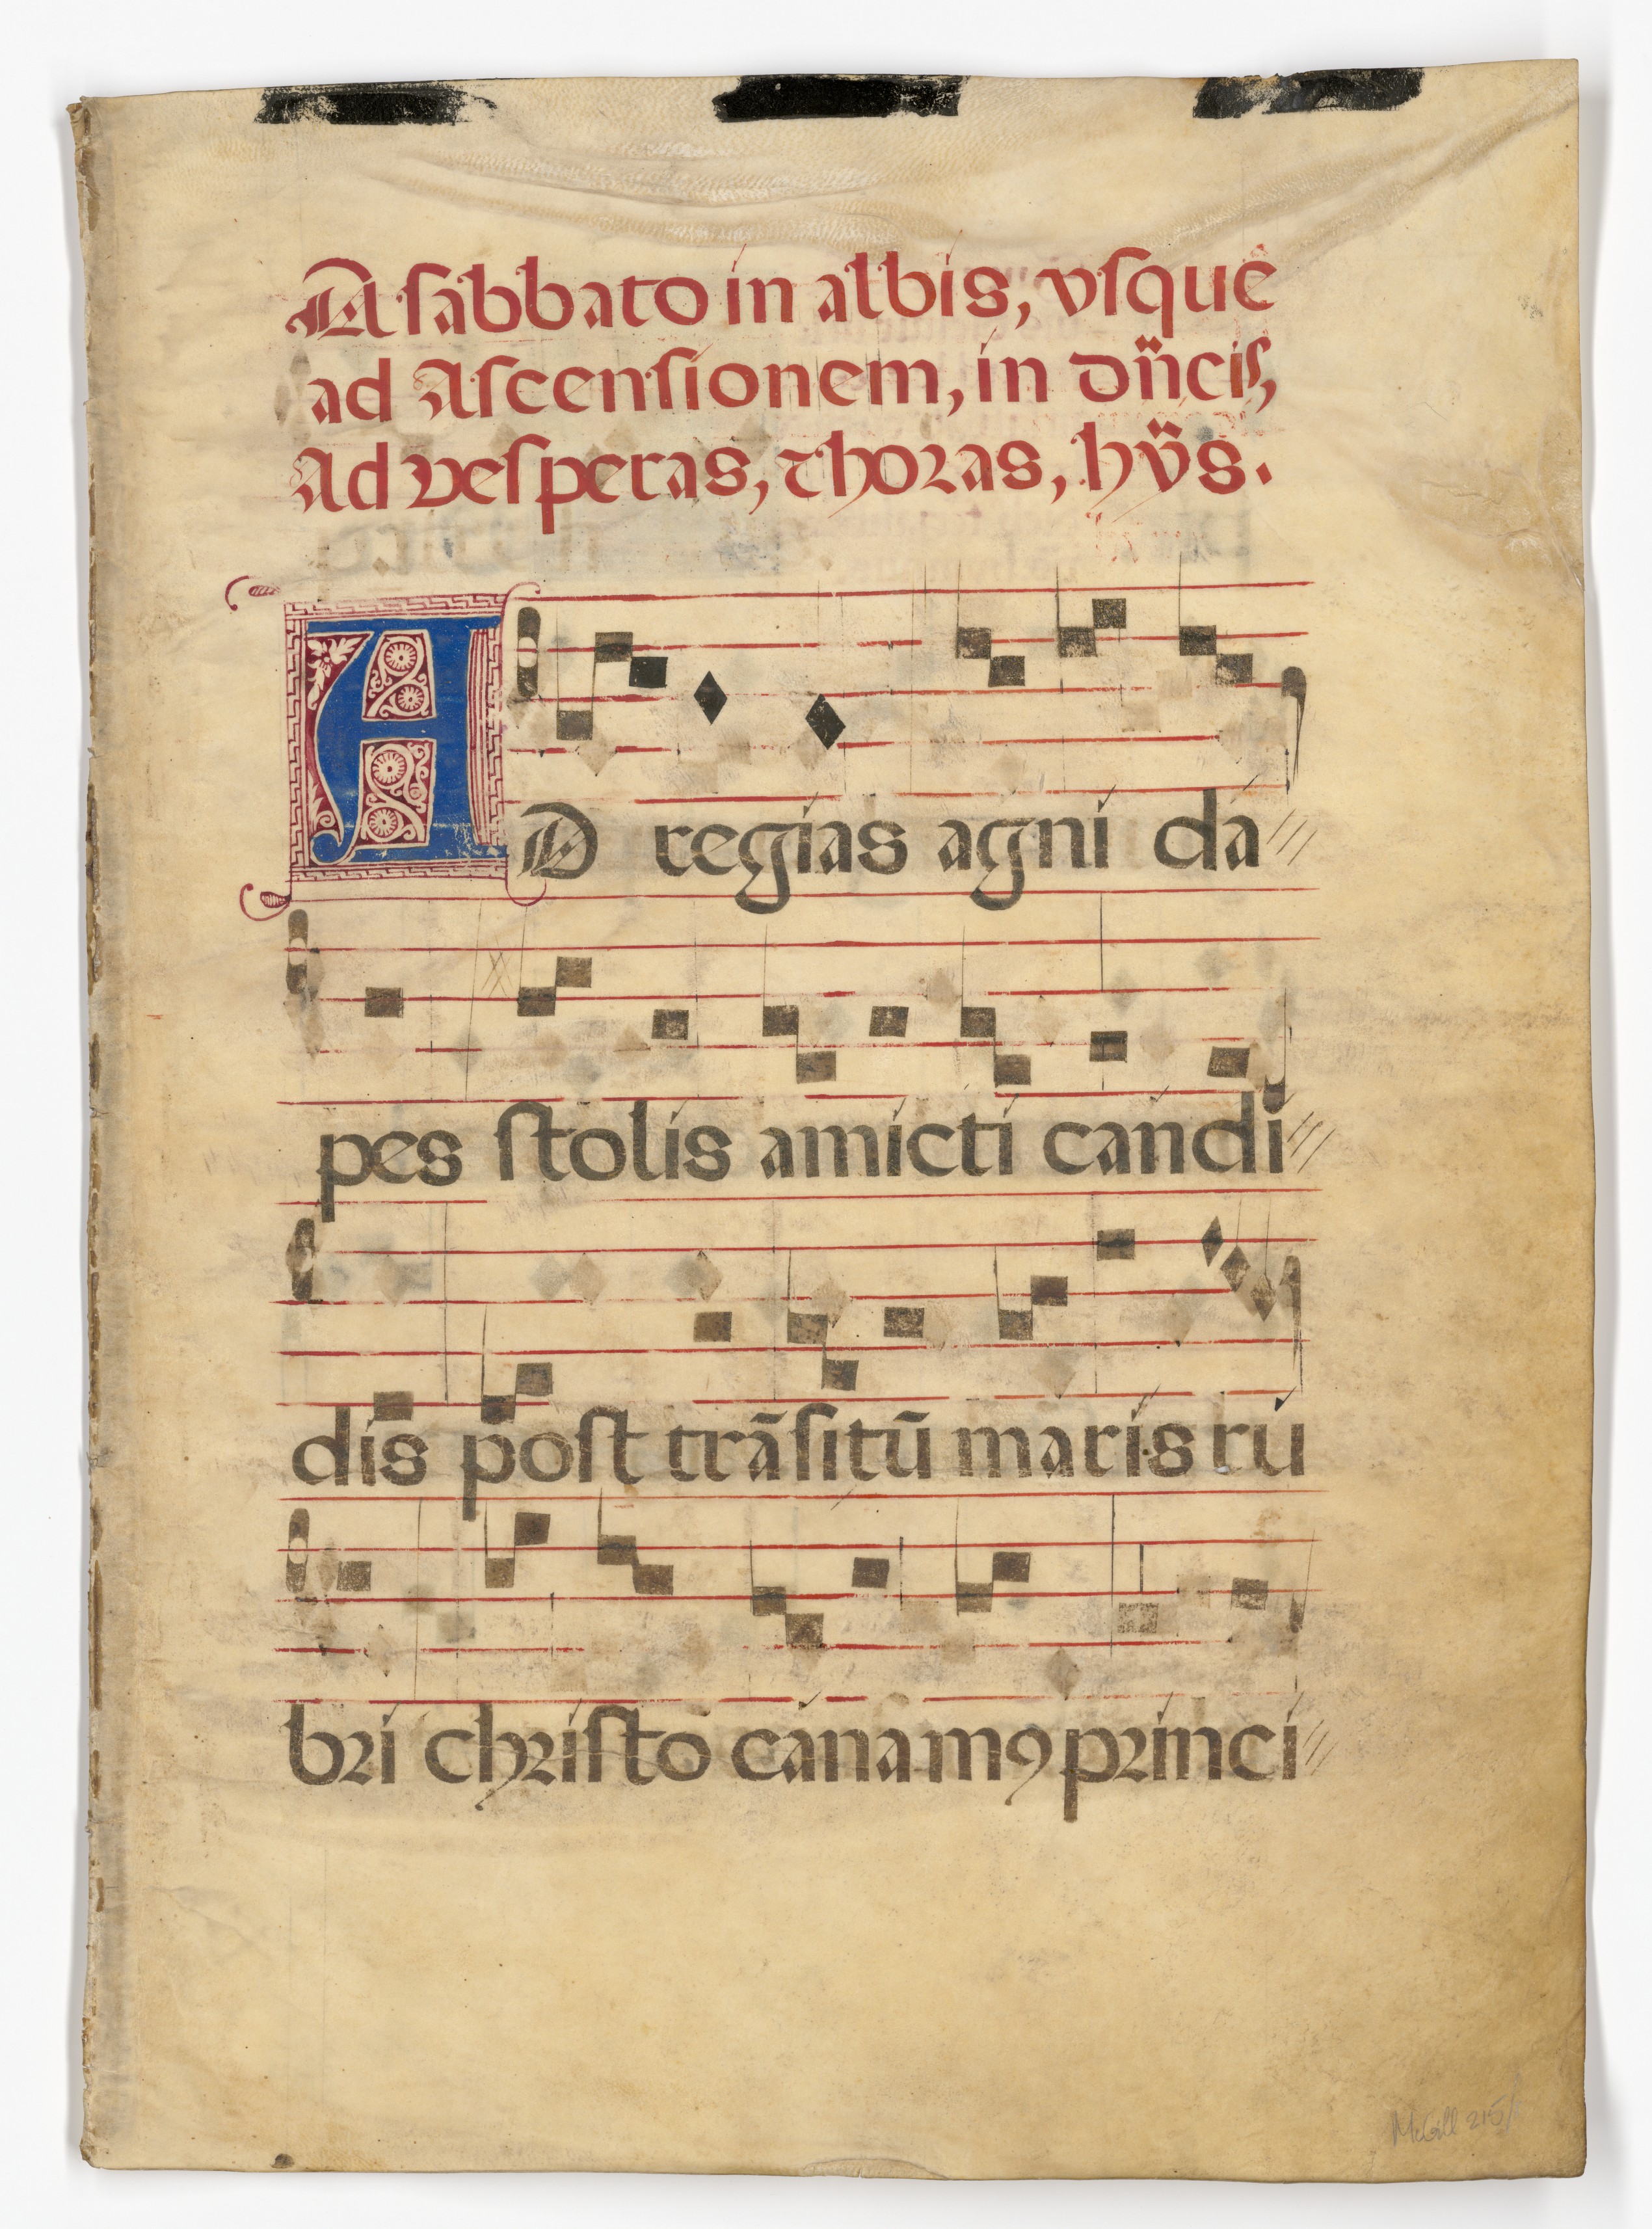 A sabbato in albis, vsque
ad Ascensionem, in dn̄cis,
Ad vesperas, & horas, hȳs.
AD regias agni da
pes stolis amicti candi
dis post trãsitũ maris ru
bri christo canamꝰ princi
McGill 215